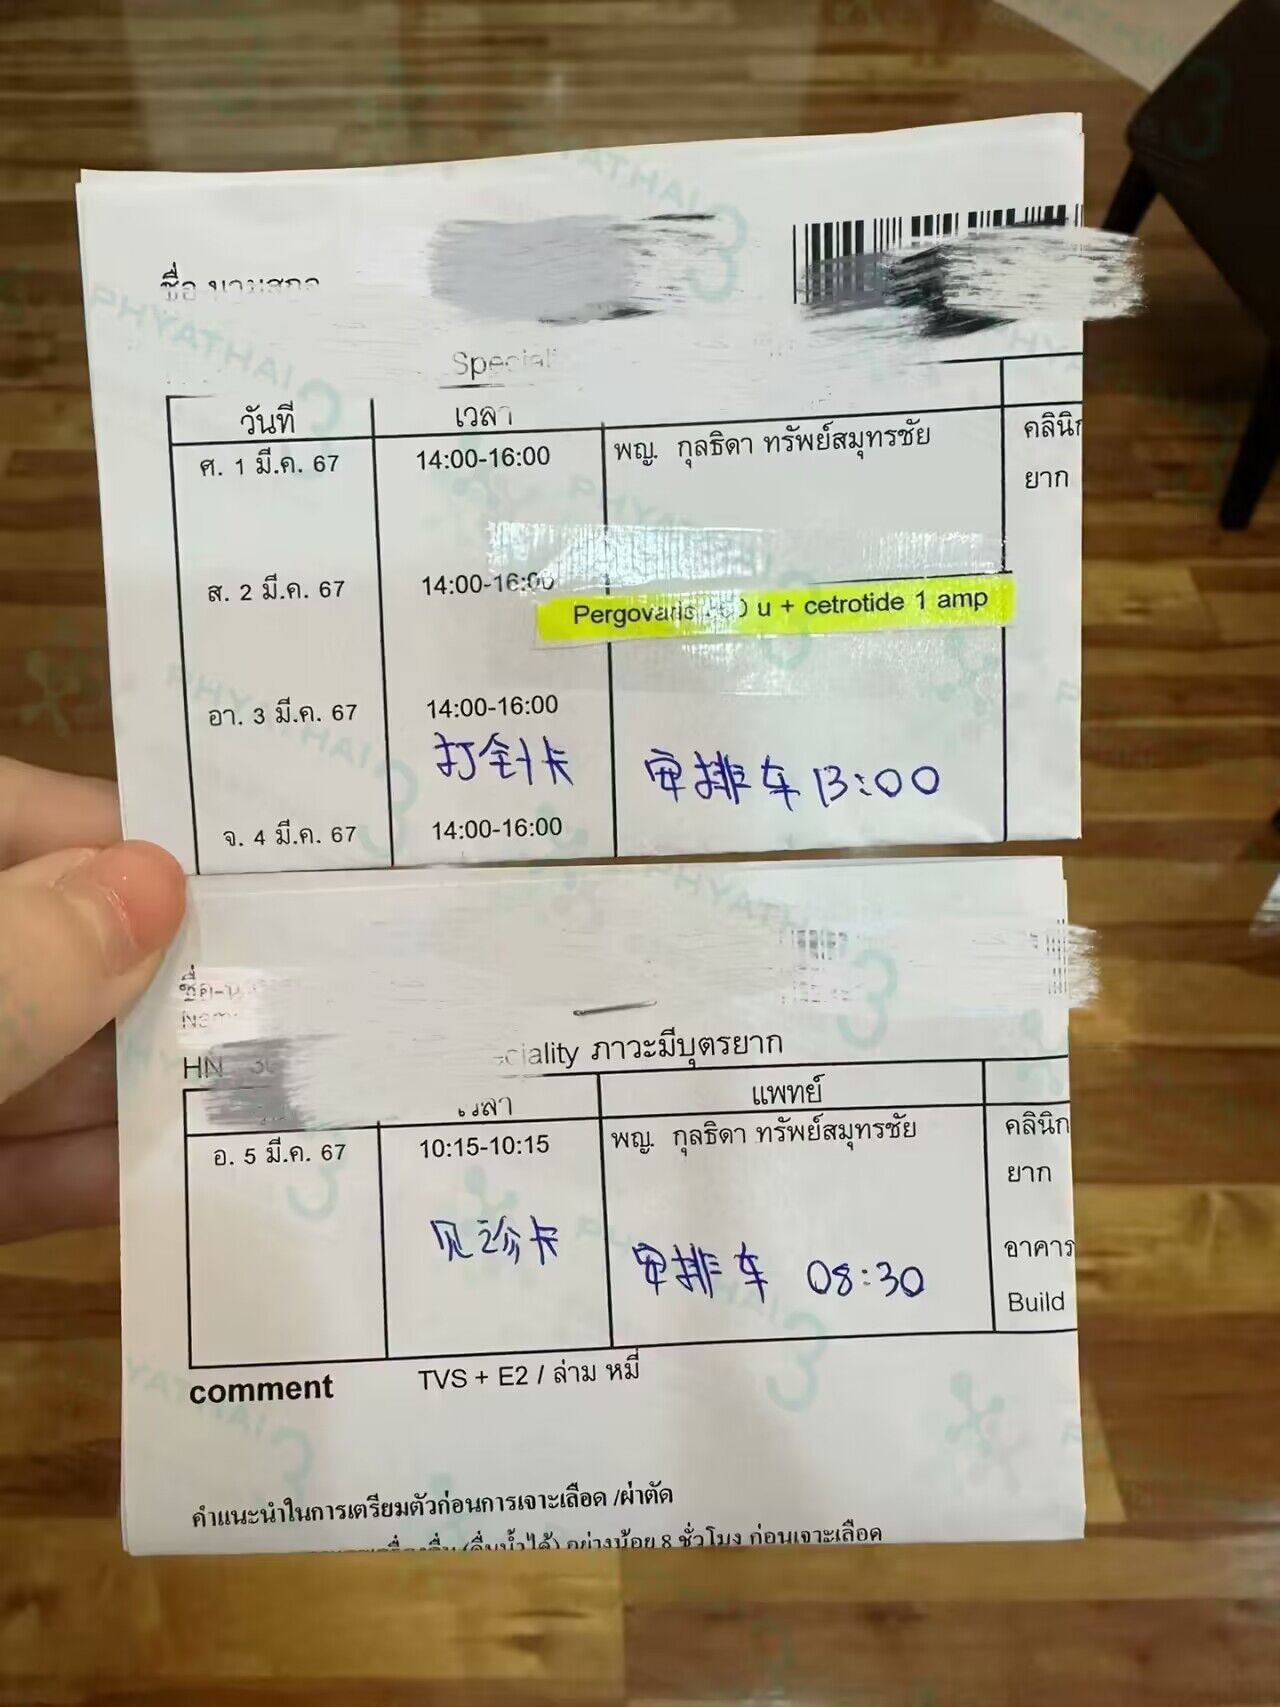 ชื่อ
วันที่ เวลา
ศ. 1 มี.ค. 67 14:00-16:00 พญ. กุลธิดา ทรัพย์สมุทรชัย คลินิก
ยาก
ส. 2 มี.ค. 67 14:00-16:00
u + cetrotide 1 amp
อา. 3 มี.ค. 67 14:00-16:00
打针卡 安排车 13:00
จ. 4 มี.ค. 67 14:00-16:00
HN ภาวะมีบุตรยาก
เวลา แพทย์
อ. 5 มี.ค. 67 10:15-10:15 พญ. กุลธิดา ทรัพย์สมุทรชัย คลินิก
ยาก
见诊卡 安排车 08:30 อาคาร
Build
comment TVS + E2 / ล่าม หมี่
คำแนะนำในการเตรียมตัวก่อนการเจาะเลือด /ผ่าตัด
(ดื่มน้ำได้) อย่างน้อย 8 ชั่วโมง ก่อนเจาะเลือด